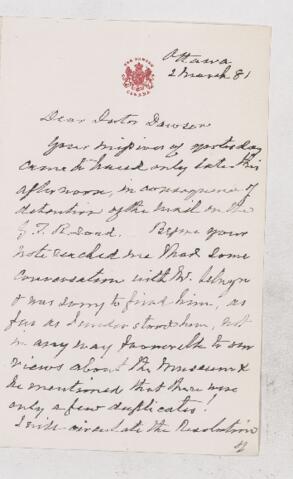 THE SENATE
CANADA
Ottawa
2 March 81
Dear Doctor Dawson
Your missive of yesterday
came to hand only late this
afternoon, in consequence of
detention of the mail on the
G. T. R. road. Before your
note reached me I had some
conversation with Mr. Selwyn
& was sorry to find him, as
far as I understood him, not
in any way favourable to our
views about the Museum &
he mentioned that there were
only a few duplicates!
I will circulate the Resolution
of